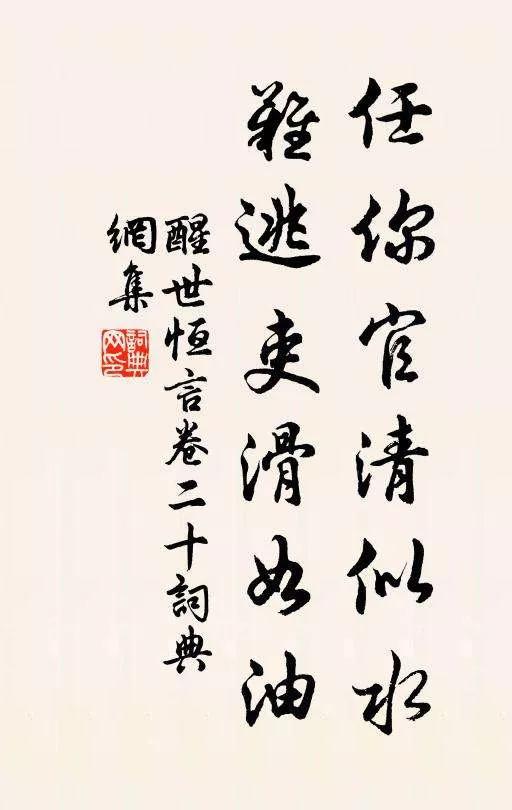 任你官清似水
難逃吏滑如油
醒世恒言卷二十詞典
網集
詞典
网印